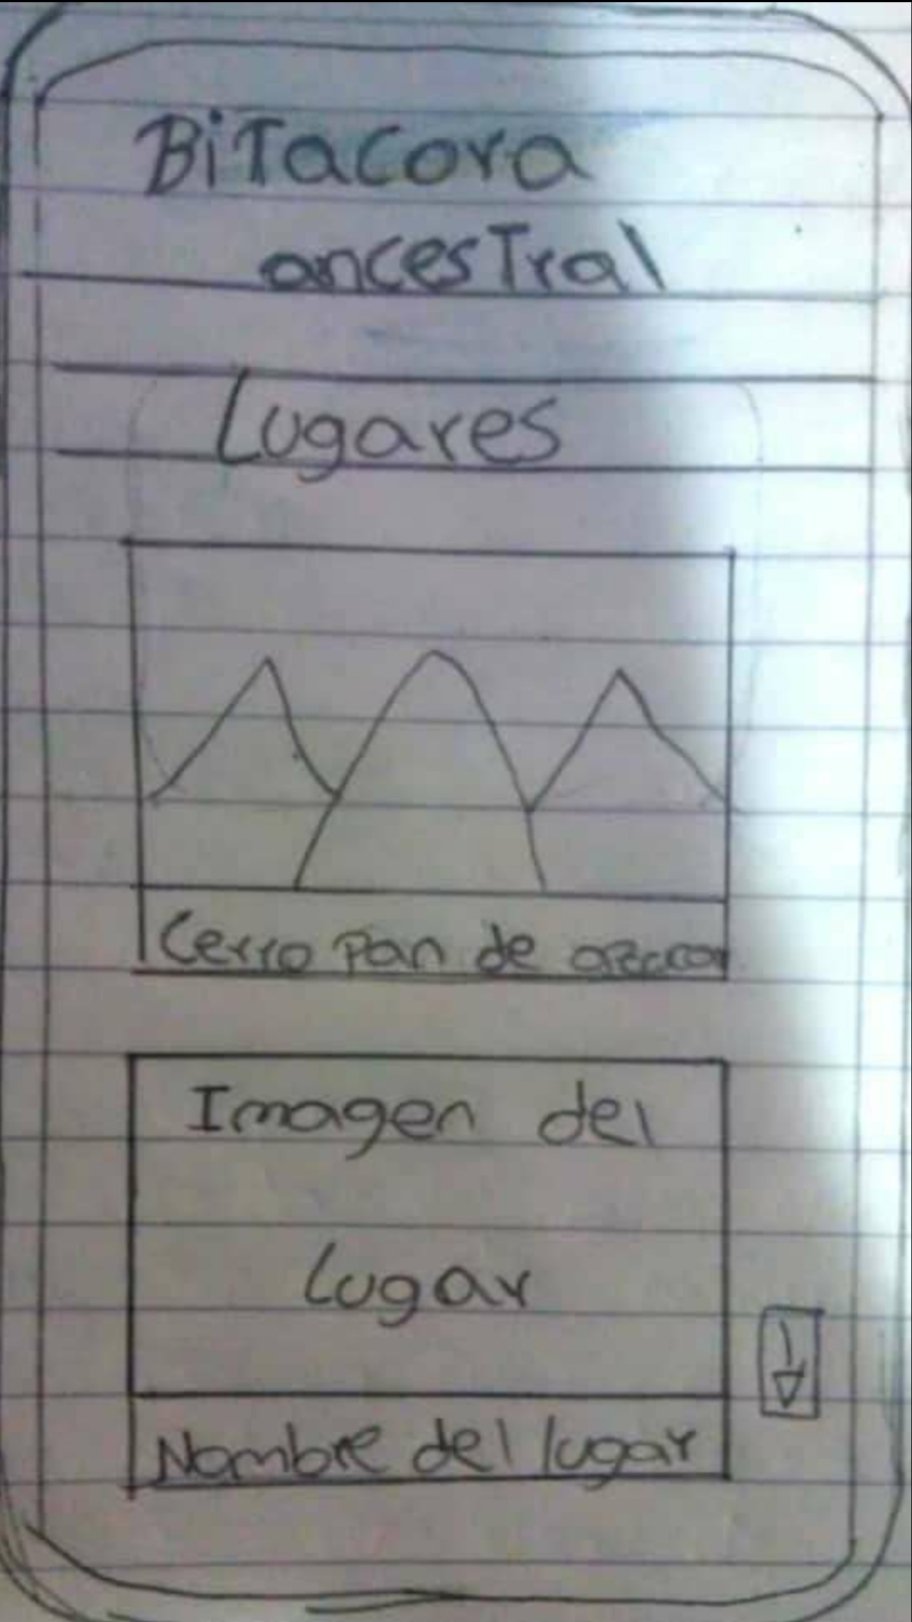 BiTacora
ancesTral
Lugares
Cerro Pan de azucar
Imagen del
Lugar
Nombre del lugar